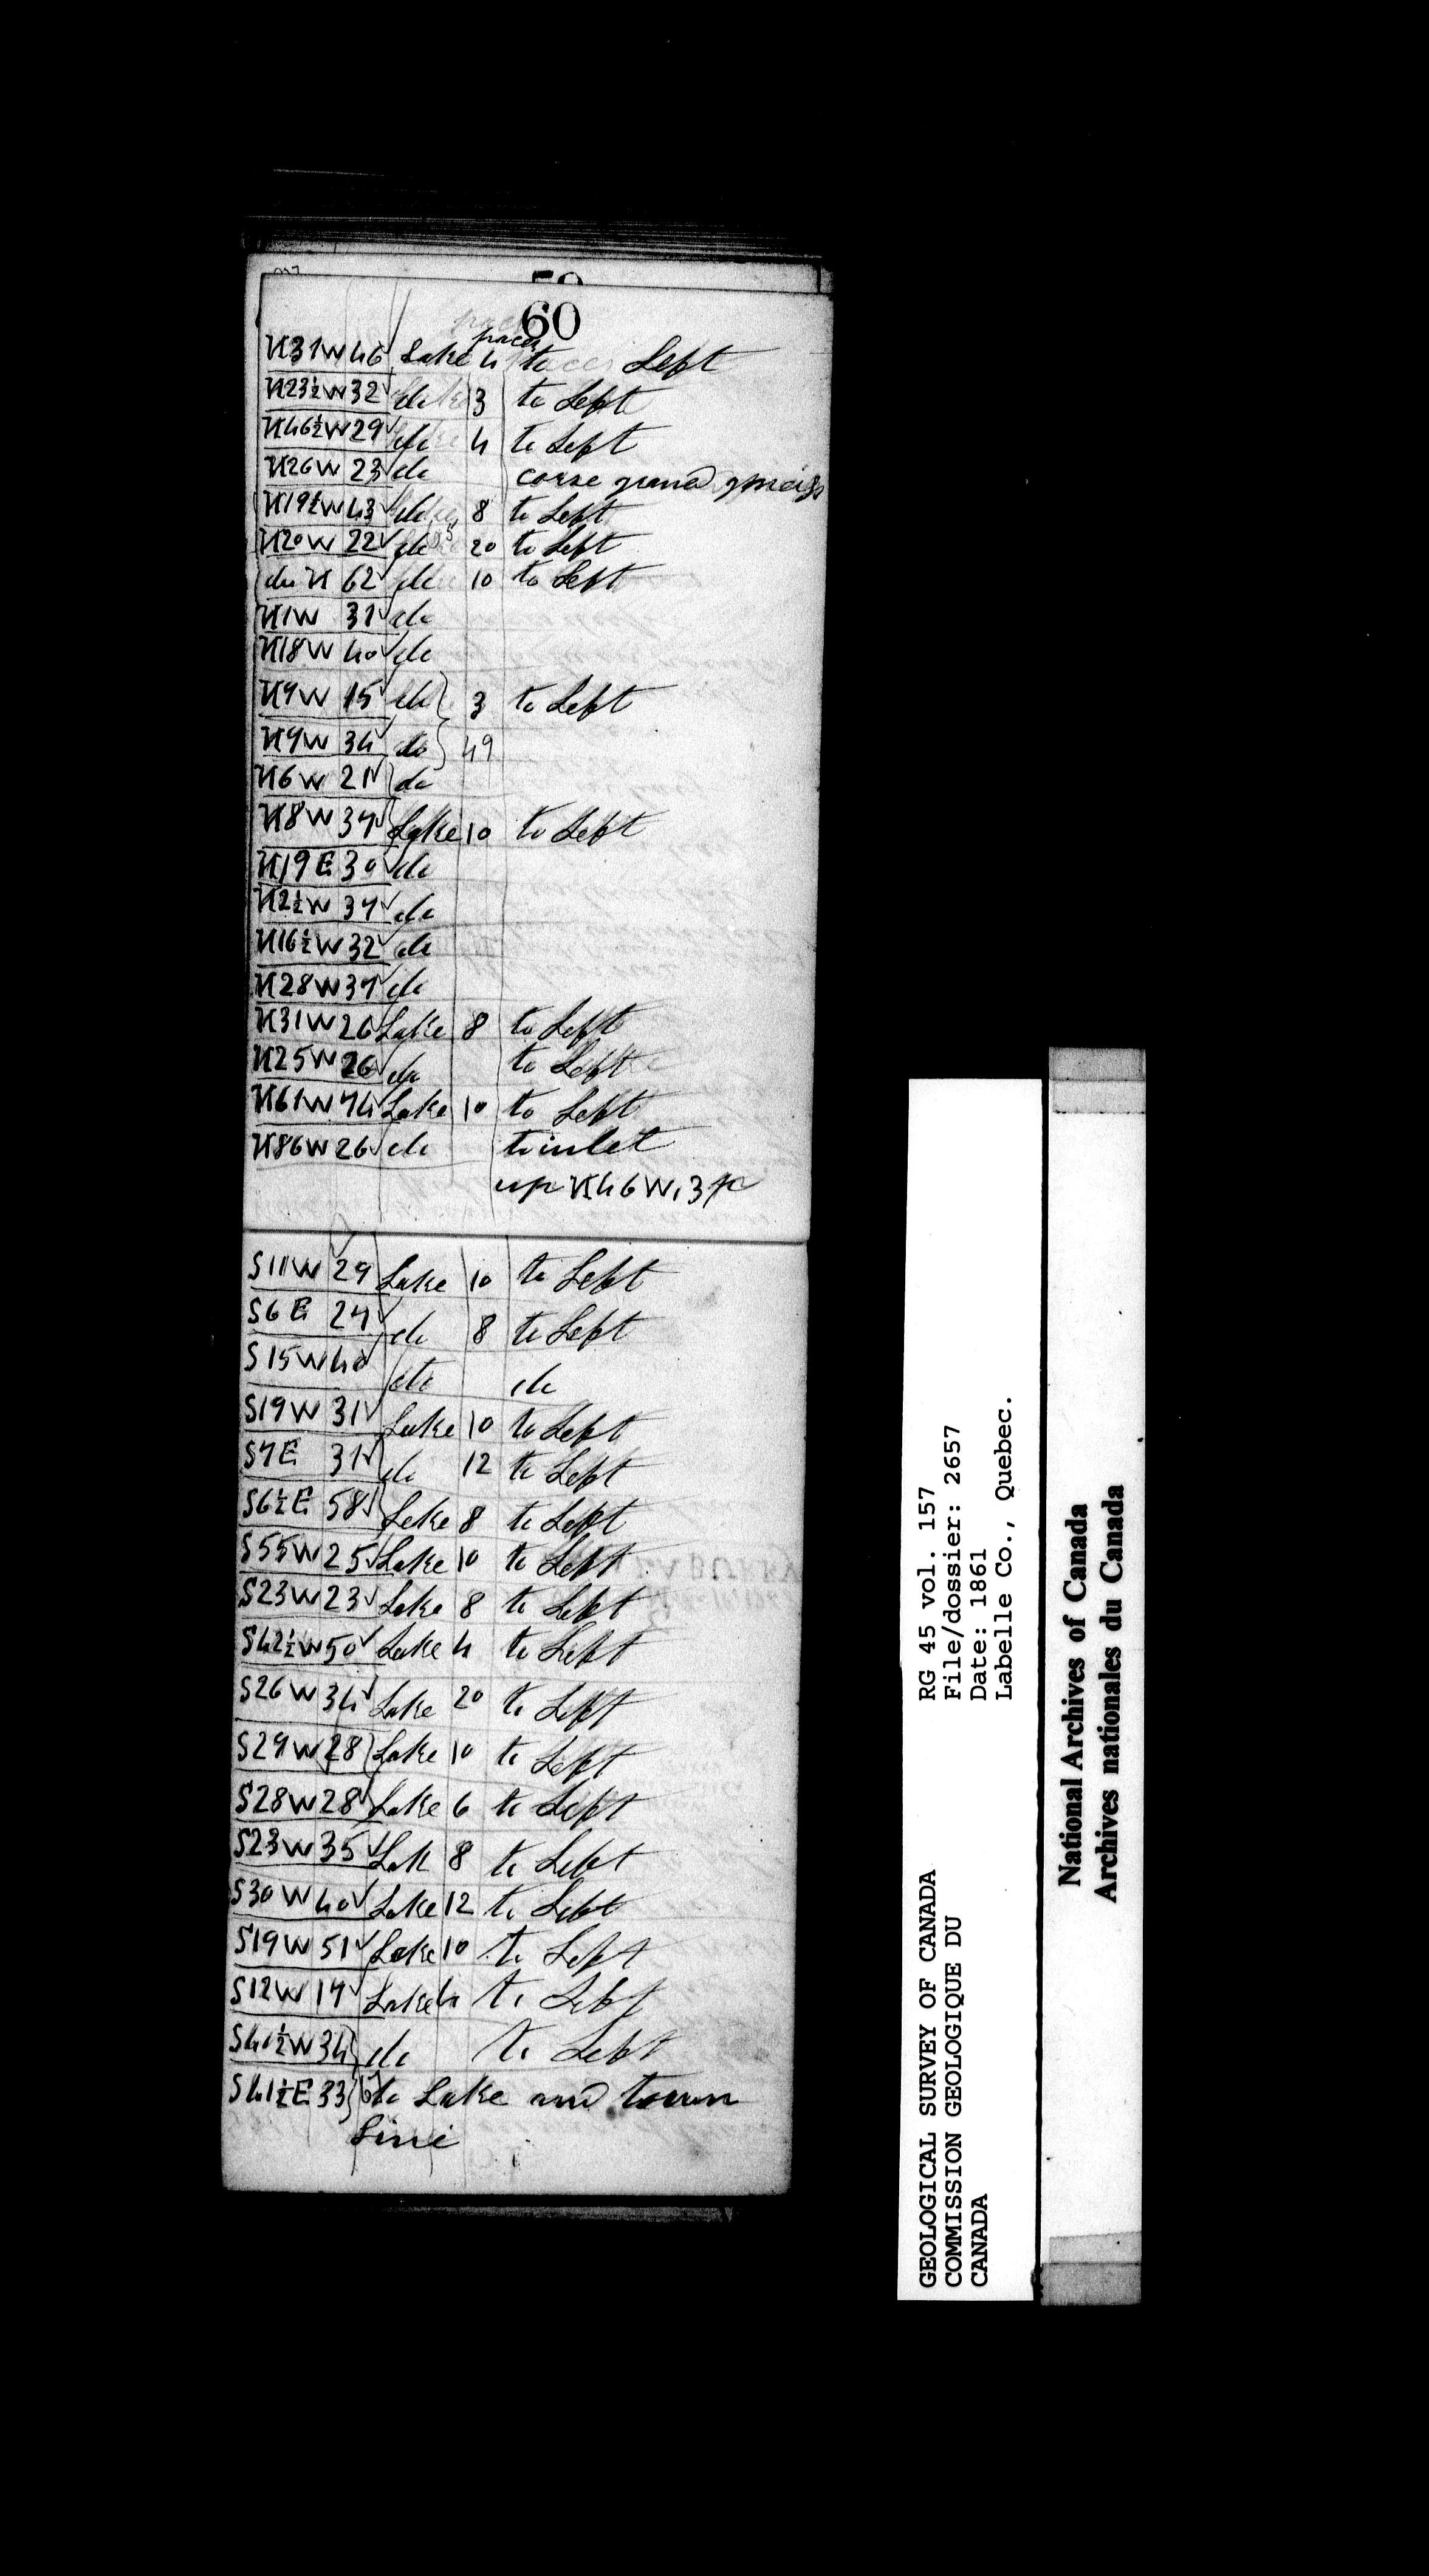 60
paces
N31W 46 Lake 4 to Left
N23½W 32 do 3 to Left
N46½W 29 do 4 to Left
N26W 23 do corse graned gneiss
N19½W 43 do 8 to Left
N20W 22 do 20 to Left
du N 62 do 10 to Left
N1W 31 do
N18W 40 do
N9W 15 do 3 to Left
N9W 34 do 49
N6W 21 do
N8W 37 Lake 10 to Left
N19E 30 do
N2½W 37 do
N16½W 32 do
N28W 37 do
N31W 26 Lake 8 to Left
N25W 26 do to Left
N61W 74 Lake 10 to Left
N86W 26 do to inlet
up N46W, 3 p
S11W 29 Lake 10 to Left
S6E 27 do 8 to Left
S15W 40 do do
S19W 31 Lake 10 to Left
S7E 31 do 12 to Left
S6½E 58 Lake 8 to Left
S55W 25 Lake 10 to Left
S23W 23 Lake 8 to Left
S42½W 50 Lake 4 to Left
S26W 34 Lake 20 to Left
S29W 28 Lake 10 to Left
S28W 28 Lake 6 to Left
S23W 35 Lak 8 to Left
S30W 40 Lake 12 to Left
S19W 51 Lake 10 to Left
S12W 17 Lake 4 to Left
S41½W 34 do to Left
S41½E 33 to Lake and town
Line
GEOLOGICAL SURVEY OF CANADA
COMMISSION GEOLOGIQUE DU
CANADA
RG 45 vol. 157
File/dossier: 2657
Date: 1861
Labelle Co., Quebec.
National Archives of Canada
Archives nationales du Canada